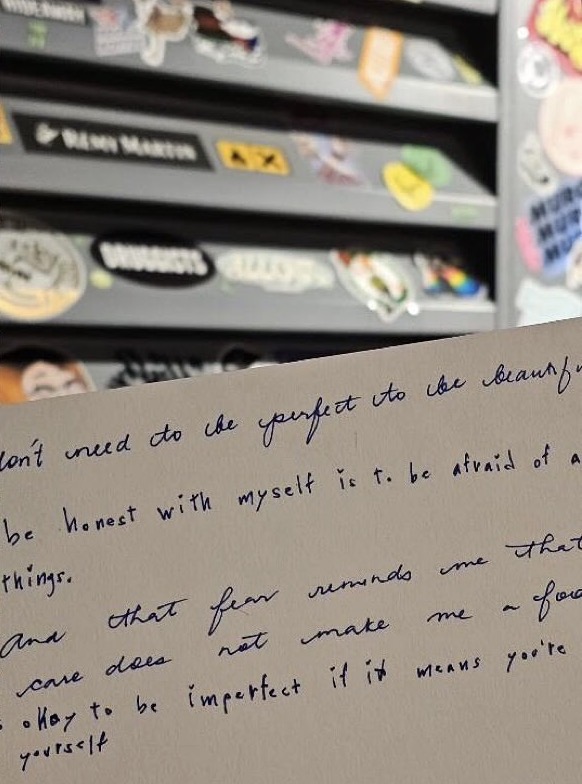 HIDEAWAY
RÉMY MARTIN
DRUGGISTS
MURO
MUR
MU
don't need to be perfect to be beautifu
be honest with myself is to be afraid of a
things.
and that fear reminds me that
care does not make me a foo
s okay to be imperfect if it means you're
yourself